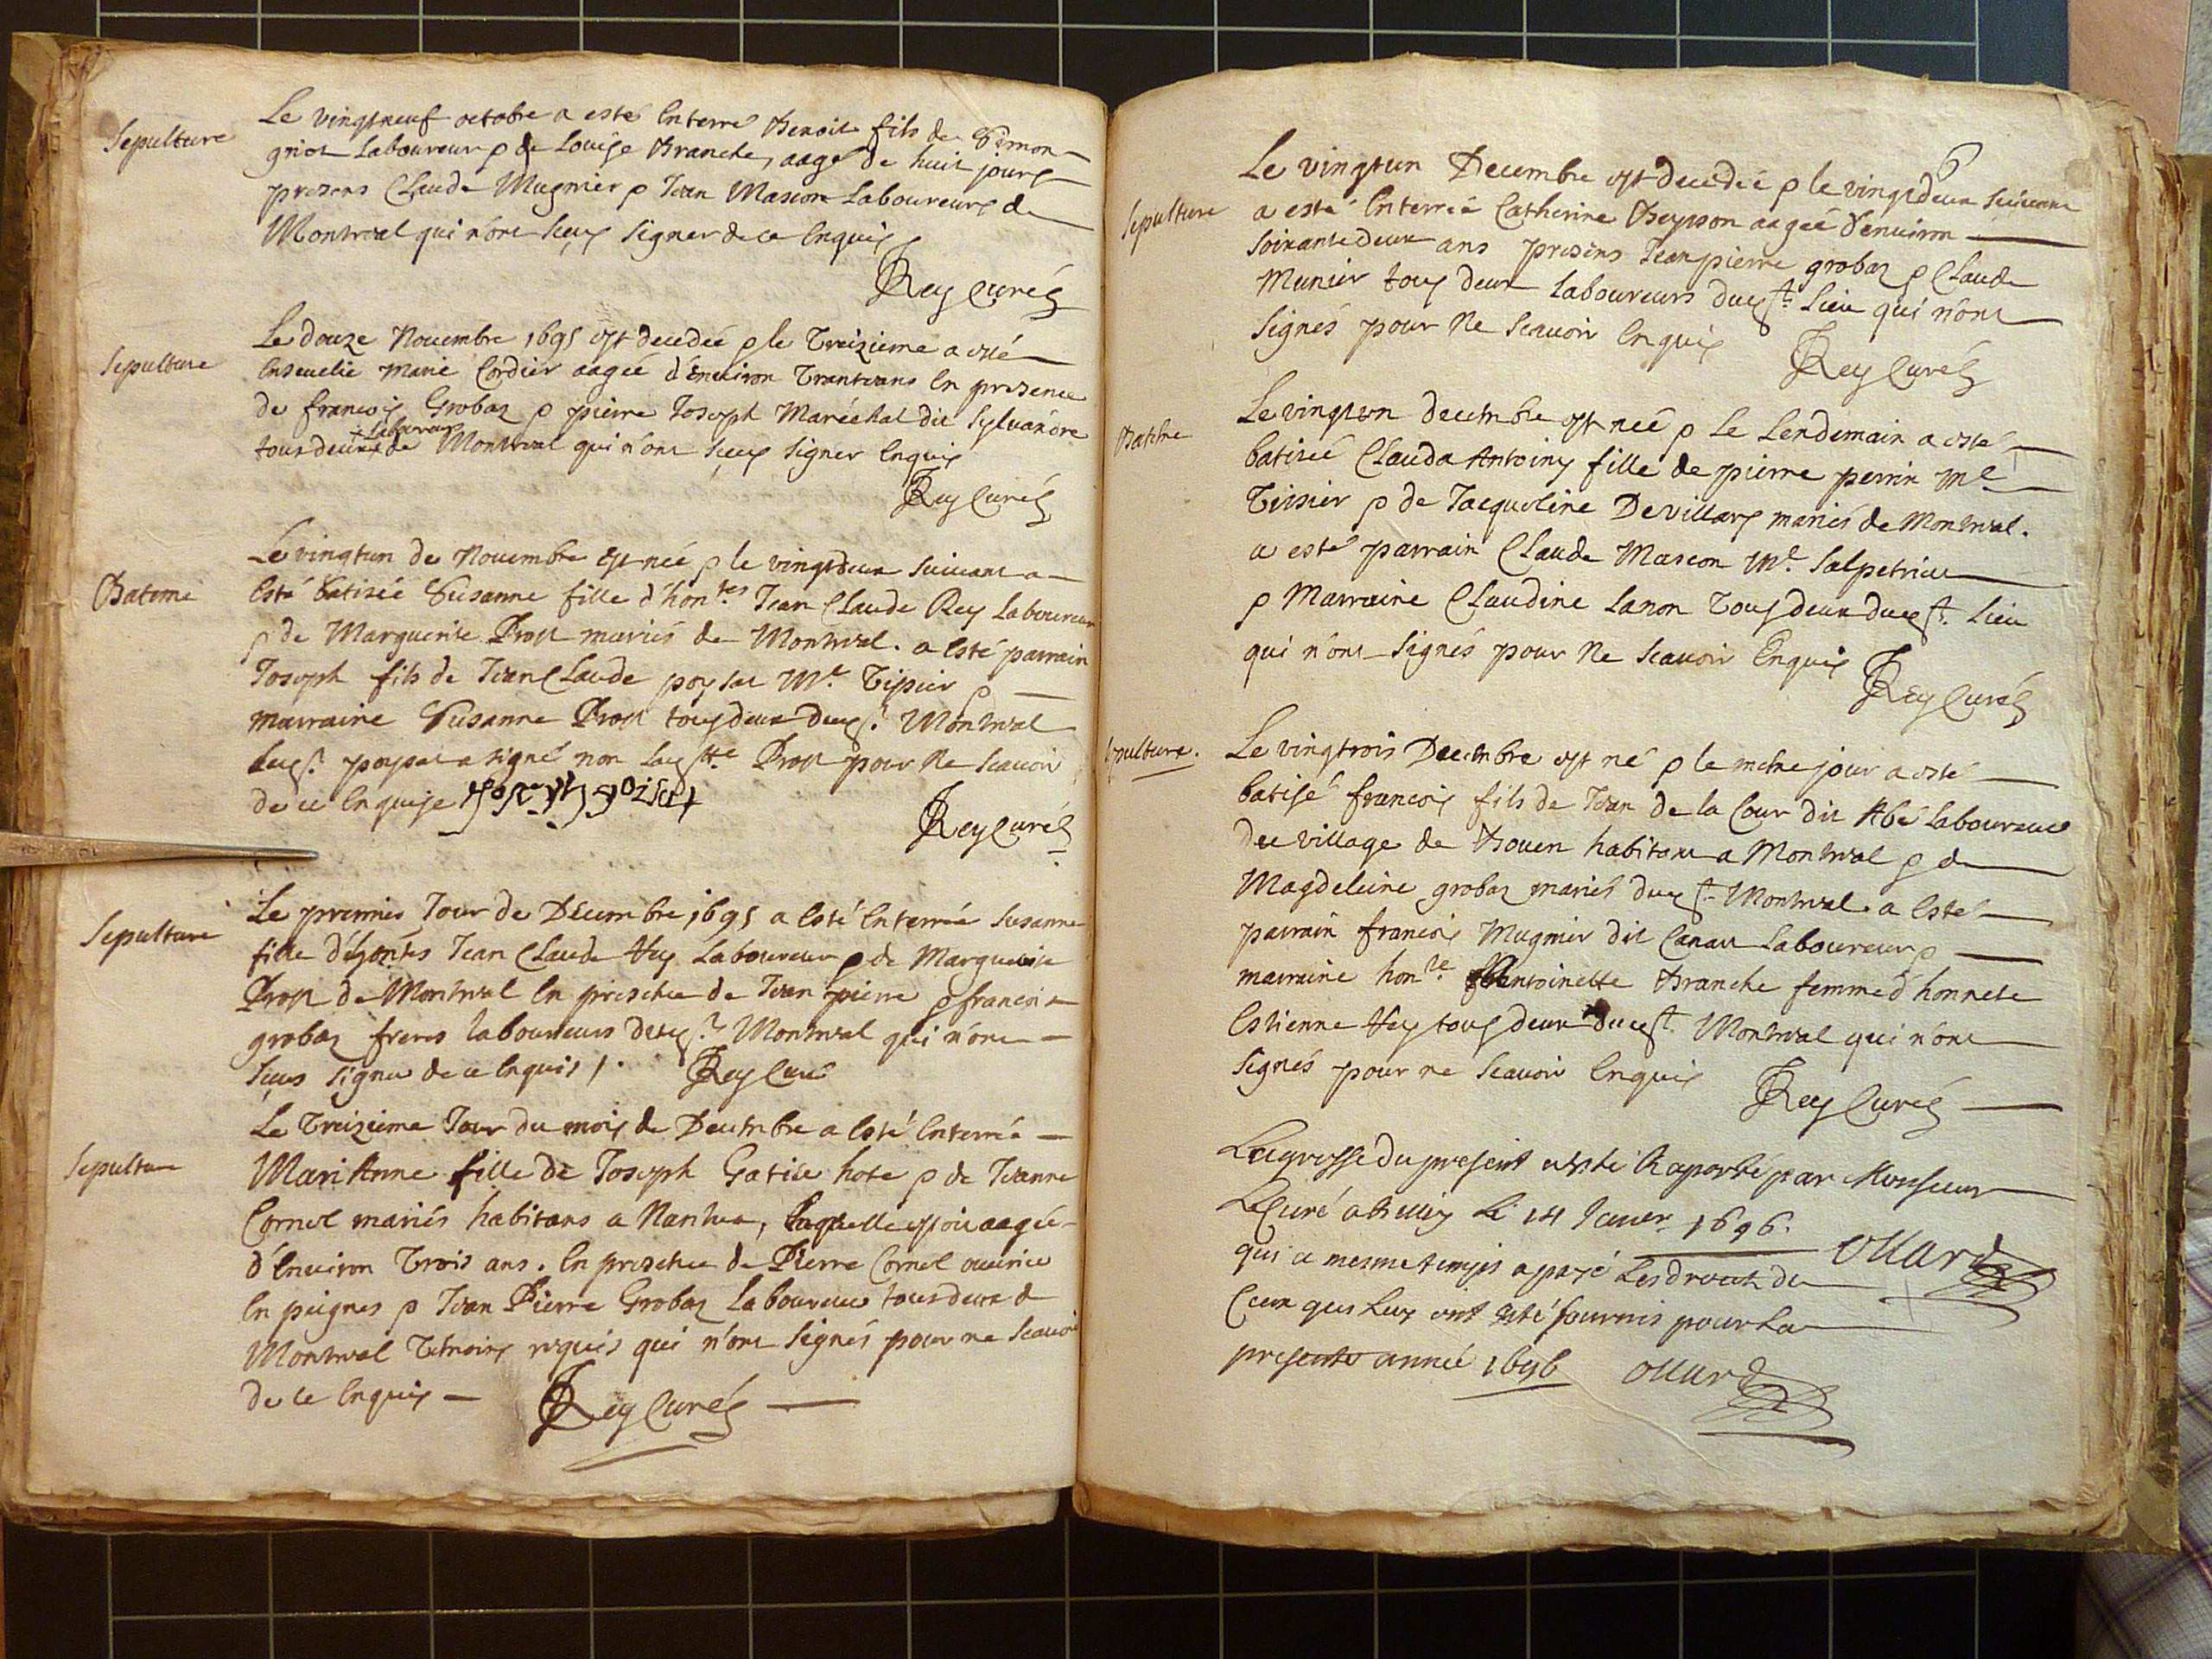 Sepulture
Le vingtneuf octobre a esté Enterré Benoit fils de Simon
griot Laboureur & de Louise Branche, aagé de huit jours
presens Claude Mugnier & Jean Mascon Laboureurs de
Montreal qui n'ont sceus signer de ce Enquis
Rey Curé
Sepulture
Le douze Novembre 1695 est decedée & le Treizieme a esté
Ensevelie Marie Cordier aagée d'environ Trente ans En presence
de francois Grobas & pierre Joseph Maréchal dit Sylvandre
tous deux Laboureurs de Montreal qui n'ont sceus signer Enquis
Rey Curé
Bateme
Le vingtun de Novembre est née & le vingtdeux suivant a
Esté batisée Susanne fille d'hon.tes Jean Claude Rey Laboureur
& de Marguerite Prost mariés de Montreal. a Esté parrain
Joseph fils de Jean Claude poysat M.e Tissier &
marraine Susanne Prost tous deux dud.t Montreal
Led.t poysat a signé non lad.tte Prost pour ne scavoir
de ce Enquise Joseph poisat
Rey Curé
Sepulture
Le premier Jour de Décembre 1695 a Esté Enterrée Susanne
fille d'h.ontes Jean Claude Rey Laboureur & de Marguerite
Prost de Montreal En presence de Jean pierre & francois
grobas freres laboureurs dud.t Montreal qui n'ont
sceus signer de ce Enquis /. Rey Curé
Sepulture
Le Treizieme Jour du mois de Decembre a Esté Enterrée
Mari Anne fille de Joseph Gatise hote & de Jeanne
Cornet mariés habitans a Nantua, laquelle estoit aagée
d'Environ Trois ans. En presence de Pierre Cornet ouvrier
En peignes & Jean Pierre Grobas Laboureur tous deux de
Montreal Temoins requis qui n'ont signés pour ne scavoir
de ce Enquis Rey Curé
6
Sepulture
Le vingtun Decembre est decedée & le vingtdeux suivant
a esté Enterrée Catherine Beysson aagée d'environ
soixante deux ans presens Jean pierre grobas & Claude
Munier tous deux Laboureurs dud.t Lieu qui n'ont
signés pour ne scavoir Enquis Rey Curé
Batême
Le vingtun decembre est née & le Lendemain a esté
batisée Clauda Antoiny fille de pierre perrin M.e
Tissier & de Jacqueline Devillars mariés de Montreal.
a esté parrain Claude Mascon M.e Salpetrier
& Marraine Claudine Lanon Tous deux dud.t Lieu
qui n'ont signés pour ne scavoir Enquis Rey Curé
Sepulture.
Le vingtrois Decembre est né & le même jour a esté
batisé francois fils de Jean de la Cour dit Abé Laboureur
du village de Bouen habitant a Montreal & de
Magdeleine grobas mariés dud.t Montreal. a Esté
parrain francois Mugnier dit Canau Laboureur &
marraine hon.te Antoinette Branche femme d'honnete
Estienne Rey tous deux dud.t Montreal qui n'ont
signés pour ne scavoir Enquis Rey Curé
La grosse du present a esté Raporté par Monsieur
Le Curé a Belley Le 14 Janvr 1696.
ollard
qui a mesme temps a payé Les droits de
Ceux qui Luy ont esté fournis pour La
presente année 1696 ollard